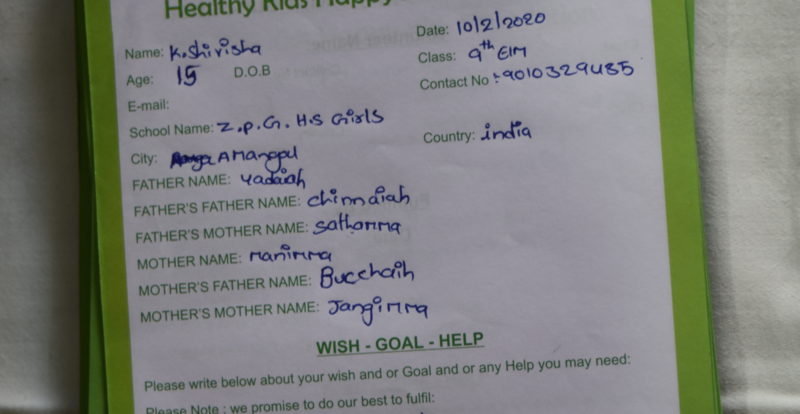 Healthy Kids Happy
Date: 10/2/2020
Name: K.Shirisha
Class: 9th E/M
Age: 15 D.O.B
Contact No :- 9010329485
E-mail:
School Name: Z.p.G. H.S Girls
City: Amangal
Country: india
FATHER NAME: yadaiah
FATHER'S FATHER NAME: chinnaiah
FATHER'S MOTHER NAME: sathamma
MOTHER NAME: manimma
MOTHER'S FATHER NAME: Bucchaih
MOTHER'S MOTHER NAME: Jangimma
WISH - GOAL - HELP
Please write below about your wish and or Goal and or any Help you may need:
Please Note : we promise to do our best to fulfil: